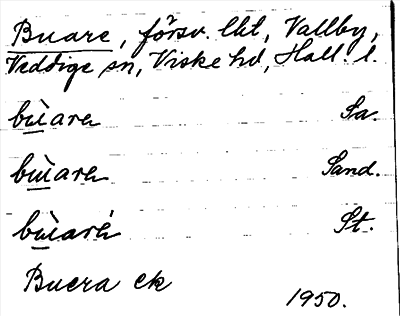 Buare, försv. lht, Vallby,
Veddige sn, Viske hd, Hall. l.
bùarɛ Sa.
bùarɛ Sand.
bùarè St.
Buera ek
1950.